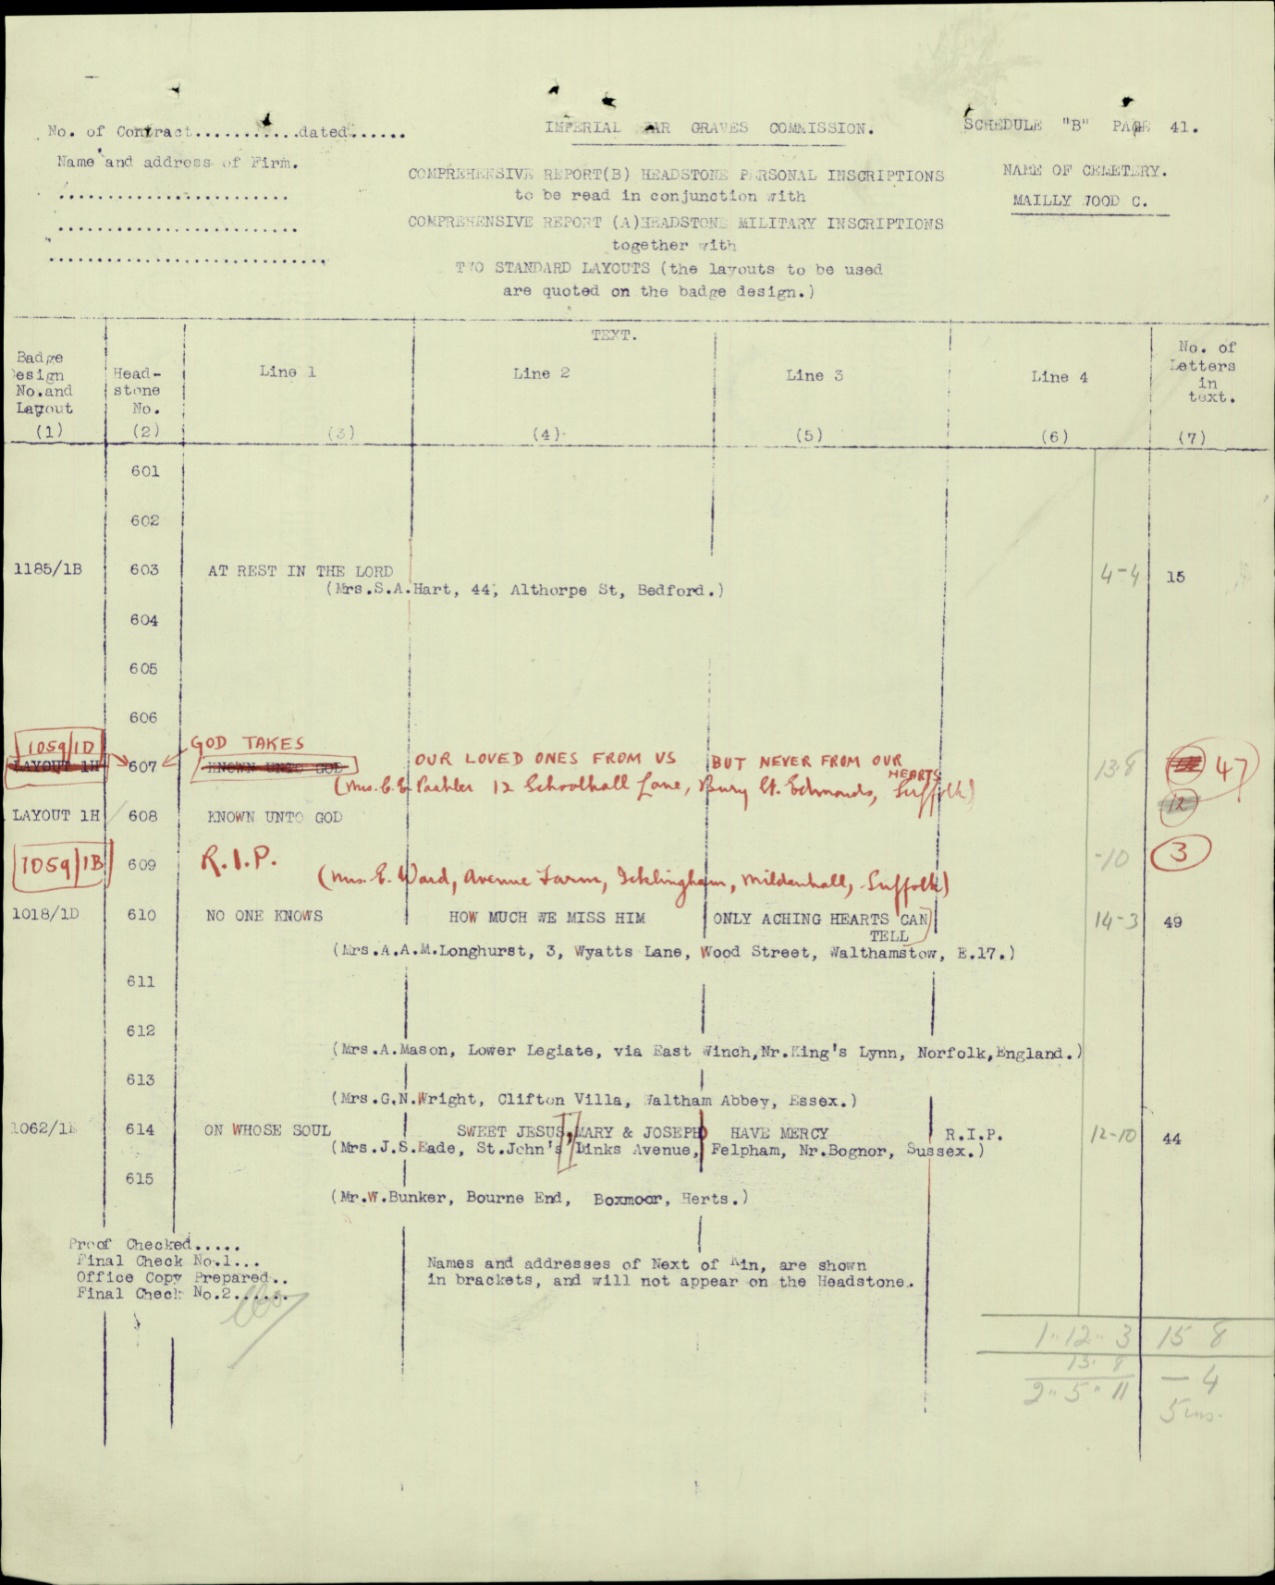 No. of Contract...........dated......
IMPERIAL WAR GRAVES COMMISSION.
SCHEDULE "B" PAGE 41.
Name and address of Firm.
COMPREHENSIVE REPORT(B) HEADSTONE PERSONAL INSCRIPTIONS
to be read in conjunction with
COMPREHENSIVE REPORT (A)HEADSTONE MILITARY INSCRIPTIONS
together with
TWO STANDARD LAYOUTS (the layouts to be used
are quoted on the badge design.)
NAME OF CEMETERY.
MAILLY WOOD C.
TEXT.
Badge
Design
No.and
Layout
(1)
Head-
stone
No.
(2)
Line 1
(3)
Line 2
(4)
Line 3
(5)
Line 4
(6)
No. of
Letters
in
text.
(7)
601
602
1185/1B 603 AT REST IN THE LORD 4-4 15
(Mrs.S.A.Hart, 44, Althorpe St, Bedford.)
604
605
606
1059/1D GOD TAKES
LAYOUT 1H 607 KNOWN UNTO GOD OUR LOVED ONES FROM US BUT NEVER FROM OUR HEARTS 13-8 47
(Mrs. E. Pachler 12 Schoolhall Lane, Bury St. Edmonds, Suffolk)
12
LAYOUT 1H 608 KNOWN UNTO GOD
1059/1B 609 R.I.P. -10 3
(Mrs. E. Ward, Avenue Farm, Icklingham, Mildenhall, Suffolk)
1018/1D 610 NO ONE KNOWS HOW MUCH WE MISS HIM ONLY ACHING HEARTS CAN 14-3 49
TELL
(Mrs.A.A.M.Longhurst, 3, Wyatts Lane, Wood Street, Walthamstow, E.17.)
611
612
(Mrs.A.Mason, Lower Legiate, via East Winch,Nr.King's Lynn, Norfolk,England.)
613
(Mrs.G.N.Wright, Clifton Villa, Waltham Abbey, Essex.)
1062/1E 614 ON WHOSE SOUL SWEET JESUS, MARY & JOSEPH HAVE MERCY R.I.P. 12-10 44
(Mrs.J.S.Eade, St.John's Links Avenue, Felpham, Nr.Bognor, Sussex.)
615
(Mr.W.Bunker, Bourne End, Boxmoor, Herts.)
Proof Checked.....
Final Check No.1...
Office Copy Prepared..
Final Check No.2......
Names and addresses of Next of Kin, are shown
in brackets, and will not appear on the Headstone.
1-12-3 15 8
13. 8 - 4
2" 5" 11 5 ins.